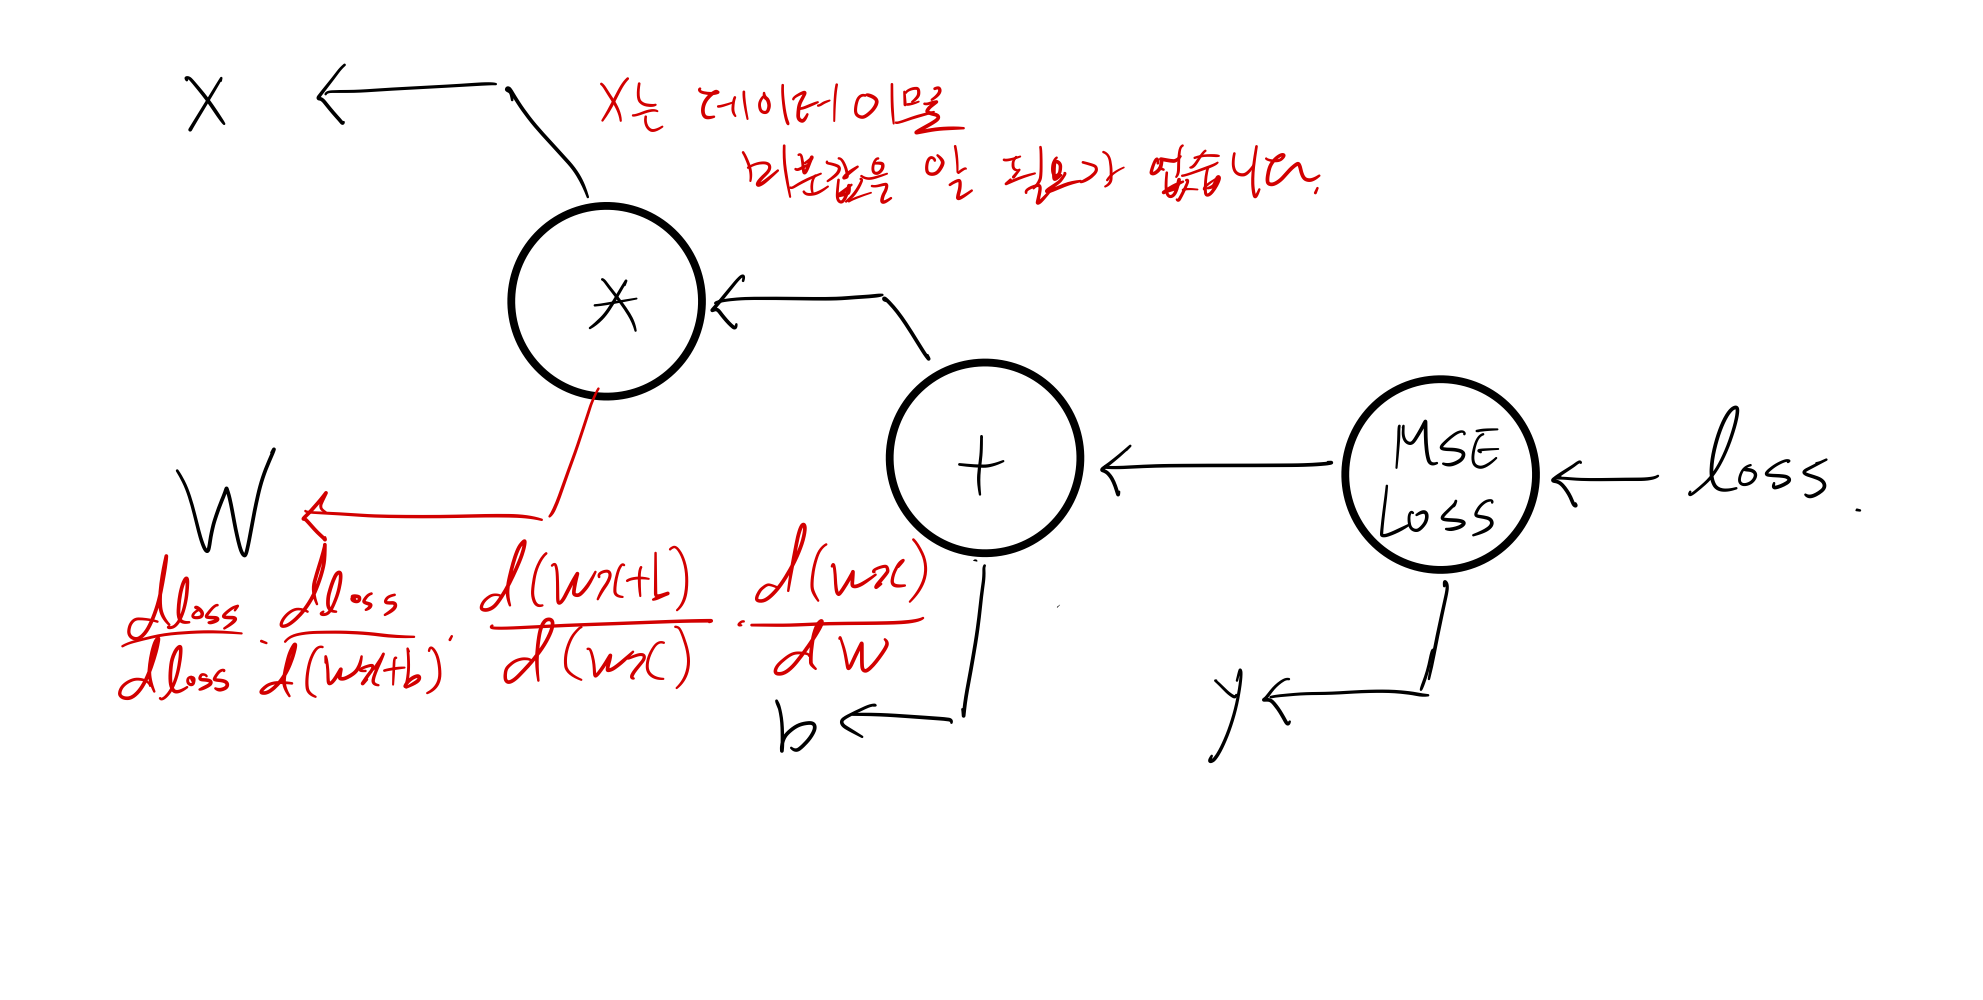 X
X는 데이터 이믈
미분값을 알 필요가 없습니다.
*
+
MSE
Loss
loss.
W
dloss/dloss · dloss/d(wx+b) · d(wx+b)/d(wx) · d(wx)/dw
b
y